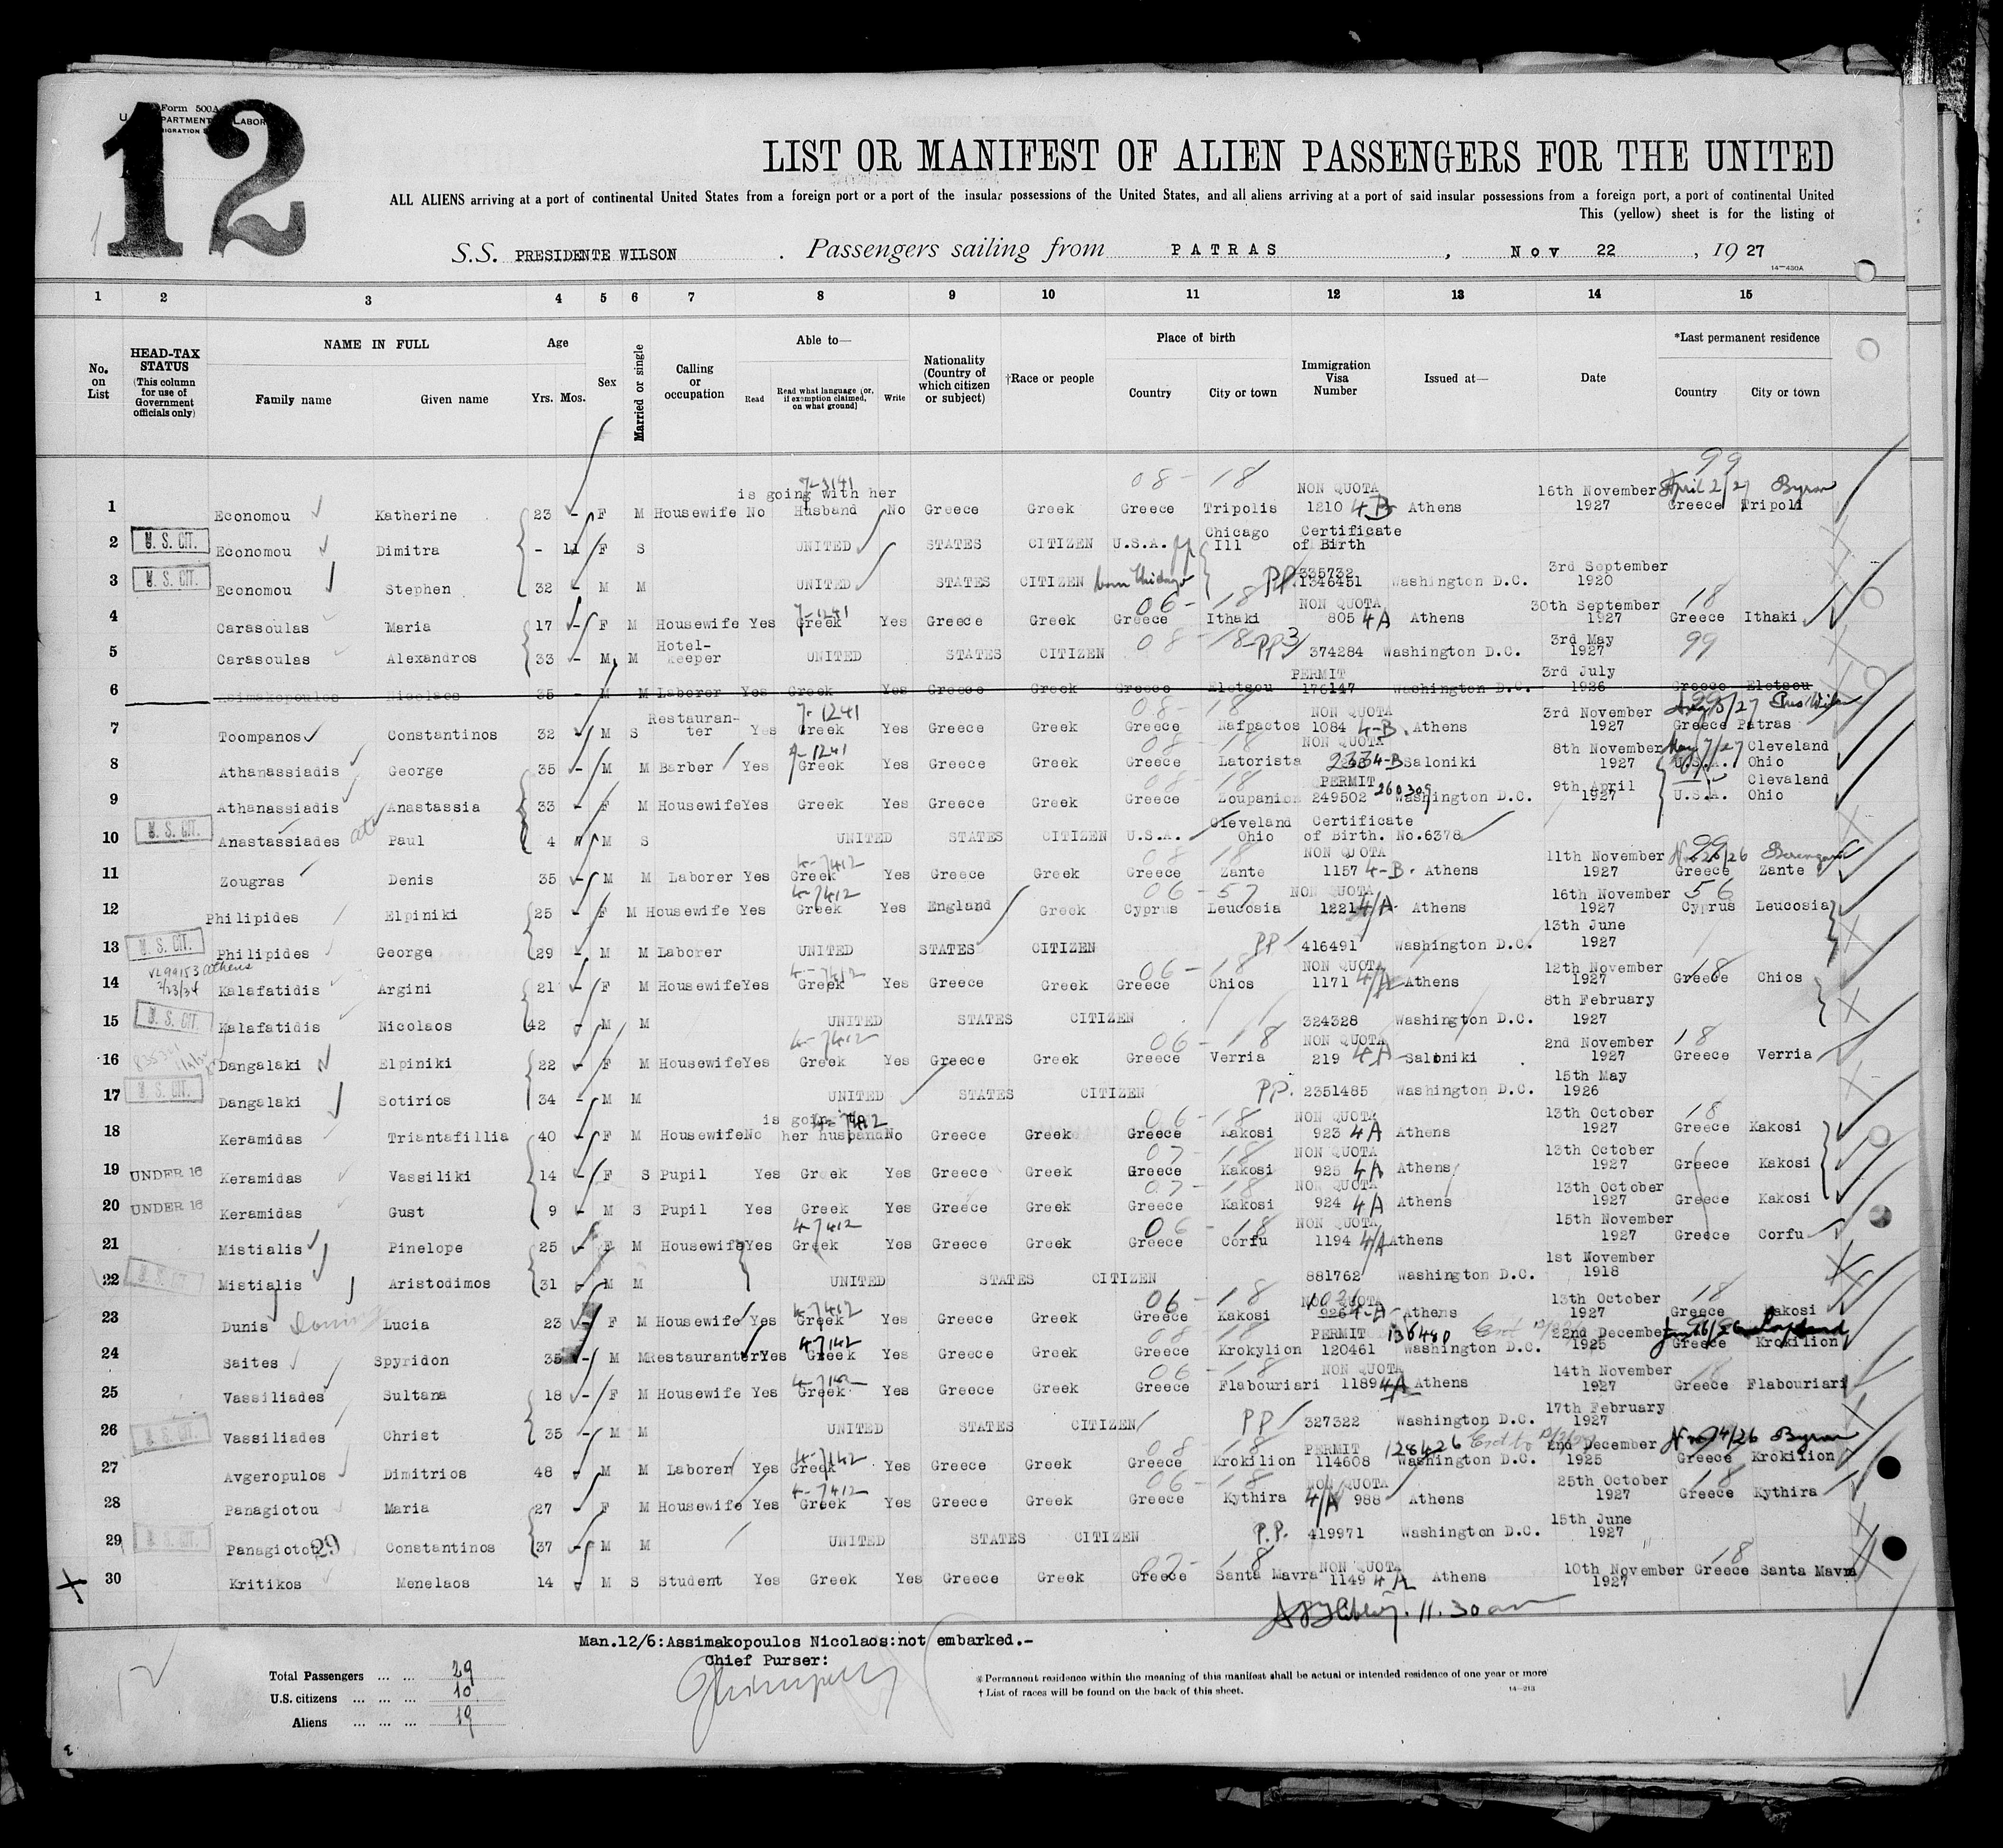 12
Form 500A
U. DEPARTMENT LABOR
LIST OR MANIFEST OF ALIEN PASSENGERS FOR THE UNITED
ALL ALIENS arriving at a port of continental United States from a foreign port or a port of the insular possessions of the United States, and all aliens arriving at a port of said insular possessions from a foreign port, a port of continental United
This (yellow) sheet is for the listing of
S.S. PRESIDENTE WILSON . Passengers sailing from PATRAS , Nov 22 , 19 27
14—430A
1 2 3 4 5 6 7 8 9 10 11 12 13 14 15
No. on List HEAD-TAX STATUS (This column for use of Government officials only) NAME IN FULL Family name Given name Age Yrs. Mos. Sex Married or single Calling or occupation Able to— Read Read what language (or, if exemption claimed, on what ground) Write Nationality (Country of which citizen or subject) †Race or people Place of birth Country City or town Immigration Visa Number Issued at— Date *Last permanent residence Country City or town
99
7-3141 08- 18
is going with her NON QUOTA 16th November April 2/27 Byron
1 Economou Katherine 23 - F M Housewife No Husband No Greece Greek Greece Tripolis 1210 4-B Athens 1927 Greece Tripoli
2 U. S. CIT. Economou Dimitra - 11 F S UNITED STATES CITIZEN U.S.A. Chicago Ill Certificate of Birth
335732 3rd September
3 U. S. CIT. Economou Stephen 32 - M M UNITED STATES CITIZEN born Chicago PP. 1346451 Washington D.C. 1920
7-1241 06- 18 NON QUOTA 30th September 18
4 Carasoulas Maria 17 - F M Housewife Yes Greek Yes Greece Greek Greece Ithaki 805 4A Athens 1927 Greece Ithaki
5 Carasoulas Alexandros 33 - M M Hotel-keeper UNITED STATES CITIZEN 08 18 PP 374284 Washington D.C. 3rd May 1927 99
PERMIT 3rd July
6 Asimakopoulos Nicolaos 35 - M M Laborer Yes Greek Yes Greece Greek Greece Eletsou 176147 Washington D.C. 1926 Greece Eletsou
7-1241 08- 18 NON QUOTA 3rd November
7 Toompanos Constantinos 32 M S Restauran-ter Yes Greek Yes Greece Greek Greece Nafpactos 1084 4-B. Athens 1927 Greece Patras
08 18 NON QUOTA 8th November May 7/27 Cleveland
8 Athanassiadis George 35 - M M Barber Yes Greek Yes Greece Greek Greece Latorista 233 4-B Saloniki 1927 U.S.A. Ohio
08 18 PERMIT 260309 9th April Clevaland
9 Athanassiadis Anastassia 33 - F M Housewife Yes Greek Yes Greece Greek Greece Zoupanion 249502 Washington D.C. 1927 U.S.A. Ohio
10 U. S. CIT. Anastassiades Ath Paul 4 M S UNITED STATES CITIZEN U.S.A. Cleveland Ohio Certificate of Birth. No.6378
4-7412 08 18 NON QUOTA 11th November 99
11 Zougras Denis 35 M M Laborer Yes Greek Yes Greece Greek Greece Zante 1157 4-B. Athens 1927 Greece Zante
4-7412 06-57 NON QUOTA 16th November 56
12 Philipides Elpiniki 25 - F M Housewife Yes Greek Yes England Greek Cyprus Leucosia 1221 4/A Athens 1927 Cyprus Leucosia
13th June
13 U. S. CIT. Philipides George 29 - M M Laborer UNITED STATES CITIZEN PP 416491 Washington D.C. 1927
4-7412 06- 18 NON QUOTA 12th November 18
14 Kalafatidis Argini 21 - F M Housewife Yes Greek Yes Greece Greek Greece Chios 1171 4/A Athens 1927 Greece Chios
8th February
15 U. S. CIT. Kalafatidis Nicolaos 42 - M M UNITED STATES CITIZEN 324328 Washington D.C. 1927
4-7412 06- 18 NON QUOTA 2nd November 18
16 Dangalaki Elpiniki 22 - F M Housewife Yes Greek Yes Greece Greek Greece Verria 219 4A Saloniki 1927 Greece Verria
15th May
17 U. S. CIT. Dangalaki Sotirios 34 - M M UNITED STATES CITIZEN PP. 2351485 Washington D.C. 1926
06- 18 NON QUOTA 13th October 18
18 Keramidas Triantafillia 40 - F M Housewife No her husband No Greece Greek Greece Kakosi 923 4A Athens 1927 Greece Kakosi
07- 18 NON QUOTA 13th October
19 UNDER 16 Keramidas Vassiliki 14 - F S Pupil Yes Greek Yes Greece Greek Greece Kakosi 925 4A Athens 1927 Greece Kakosi
07- 18 NON QUOTA 13th October
20 UNDER 16 Keramidas Gust 9 - M S Pupil Yes Greek Yes Greece Greek Greece Kakosi 924 4A Athens 1927 Greece Kakosi
4-7412 06- 18 NON QUOTA 15th November
21 Mistialis Pinelope 25 - F M Housewife Yes Greek Yes Greece Greek Greece Corfu 1194 4/A Athens 1927 Greece Corfu
1st November
22 U. S. CIT. Mistialis Aristodimos 31 - M M UNITED STATES CITIZEN 881762 Washington D.C. 1918
4-7412 06- 18 NON QUOTA 13th October 18
23 Dunis Lucia 23 - F M Housewife Yes Greek Yes Greece Greek Greece Kakosi 926 4-A Athens 1927 Greece Kakosi
4-7142 08- 18 PERMIT 136480 22nd December
24 Saites Spyridon 35 - M M Restauranter Yes Greek Yes Greece Greek Greece Krokylion 120461 Washington D.C. 1925 Greece Krokilion
4-7142 06- 18 NON QUOTA 14th November 18
25 Vassiliades Sultana 18 - F M Housewife Yes Greek Yes Greece Greek Greece Flabouriari 1189 4A Athens 1927 Greece Flabouriari
17th February
26 U. S. CIT. Vassiliades Christ 35 - M M UNITED STATES CITIZEN PP 327322 Washington D.C. 1927
4-7142 08 18 PERMIT 128426 2nd December Byron
27 Avgeropulos Dimitrios 48 - M M Laborer Yes Greek Yes Greece Greek Greece Krokilion 114608 Washington D.C. 1925 Greece Krokilion
4-7412 06- 18 NON QUOTA 25th October 18
28 Panagiotou Maria 27 - F M Housewife Yes Greek Yes Greece Greek Greece Kythira 4/A 988 Athens 1927 Greece Kythira
15th June
29 Panagiotou 29 Constantinos 37 - M M UNITED STATES CITIZEN P.P. 419971 Washington D.C. 1927
07- 18 NON QUOTA 10th November 18
X 30 Kritikos Menelaos 14 - M S Student Yes Greek Yes Greece Greek Greece Santa Mavra 1149 4A Athens 1927 Greece Santa Mavra
11.30 am
Man.12/6:Assimakopoulos Nicolaos:not embarked.-
Chief Purser:
12
Total Passengers ... ... 29
U.S. citizens ... ... ... 10
Aliens ... ... ... 19
* Permanent residence within the meaning of this manifest shall be actual or intended residence of one year or more
† List of races will be found on the back of this sheet.
14—213